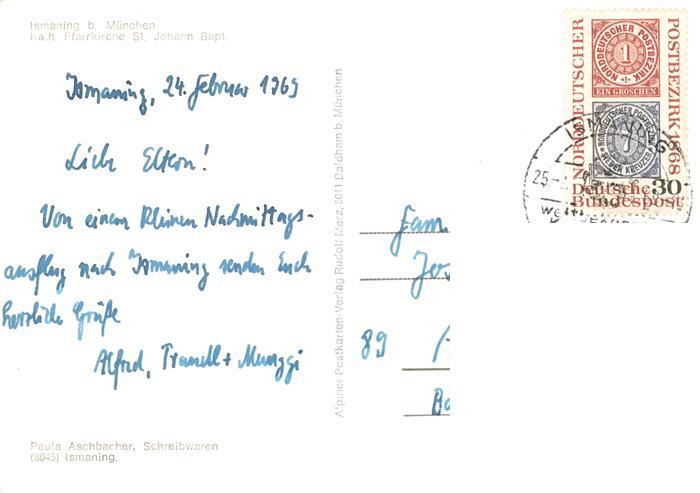 Ismaning b. München
Kath. Pfarrkirche St. Johann Bapt.
Ismaning, 24. Februar 1969
Liebe Eltern!
Von einem kleinen Nachmittags-
ausflug nach Ismaning senden Euch
herzliche Grüße
Alfred, Traudl + Munggi
Paula Aschbacher, Schreibwaren
(8045) Ismaning.
Alpiner Postkarten-Verlag Rudolf Merz, 8011 Baldham b. München
Fam.
Jos
89
Ba
NORDDEUTSCHER POSTBEZIRK 1868
NORDDEUTSCHER POSTBEZIRK
1
EIN GROSCHEN
NORDDEUTSCHER POSTBEZIRK
7
SIEBEN KREUZER
30
Deutsche
Bundespost
ISMANING
25.